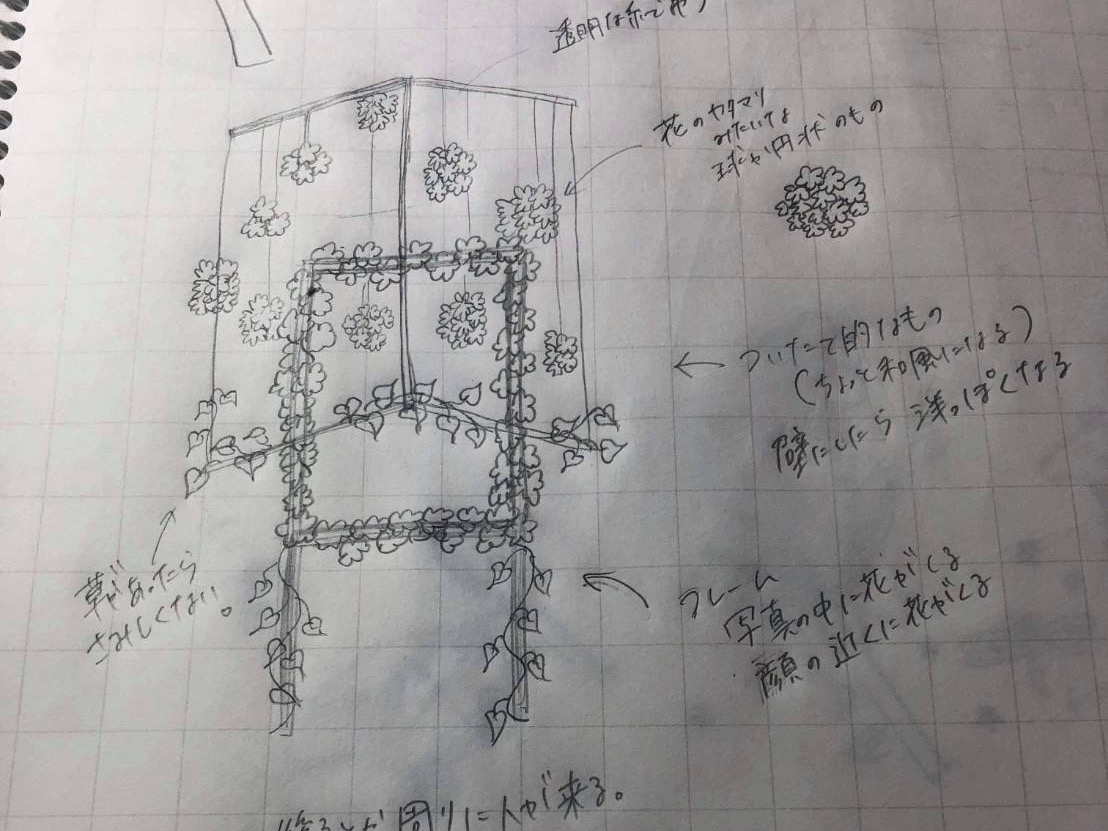 透明な糸で
花のカタマリ
みたいな
球か円状のもの
ついたて的なもの
(ちょっと和風になる)
壁にしたら洋っぽくなる
草があったら
さみしくない。
フレーム
写真の中に花がくる
顔の近くに花がくる
周りに人が来る。